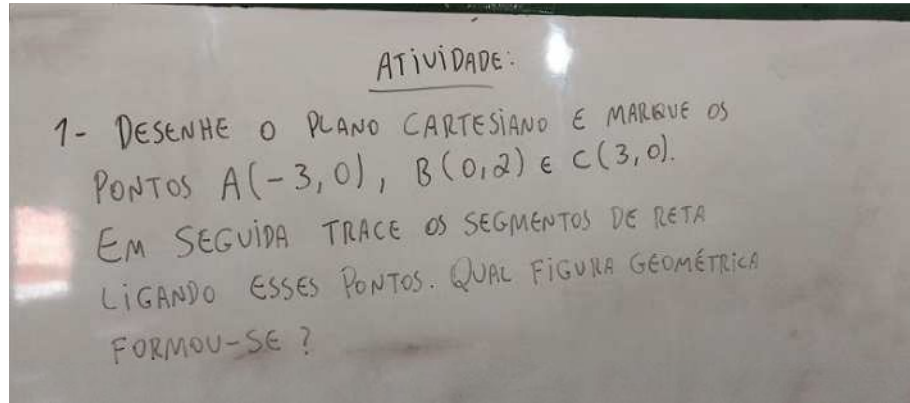 ATIVIDADE:
1- DESENHE O PLANO CARTESIANO E MARQUE OS
PONTOS A(-3,0), B(0,2) E C(3,0).
EM SEGUIDA TRACE OS SEGMENTOS DE RETA
LIGANDO ESSES PONTOS. QUAL FIGURA GEOMÉTRICA
FORMOU-SE?